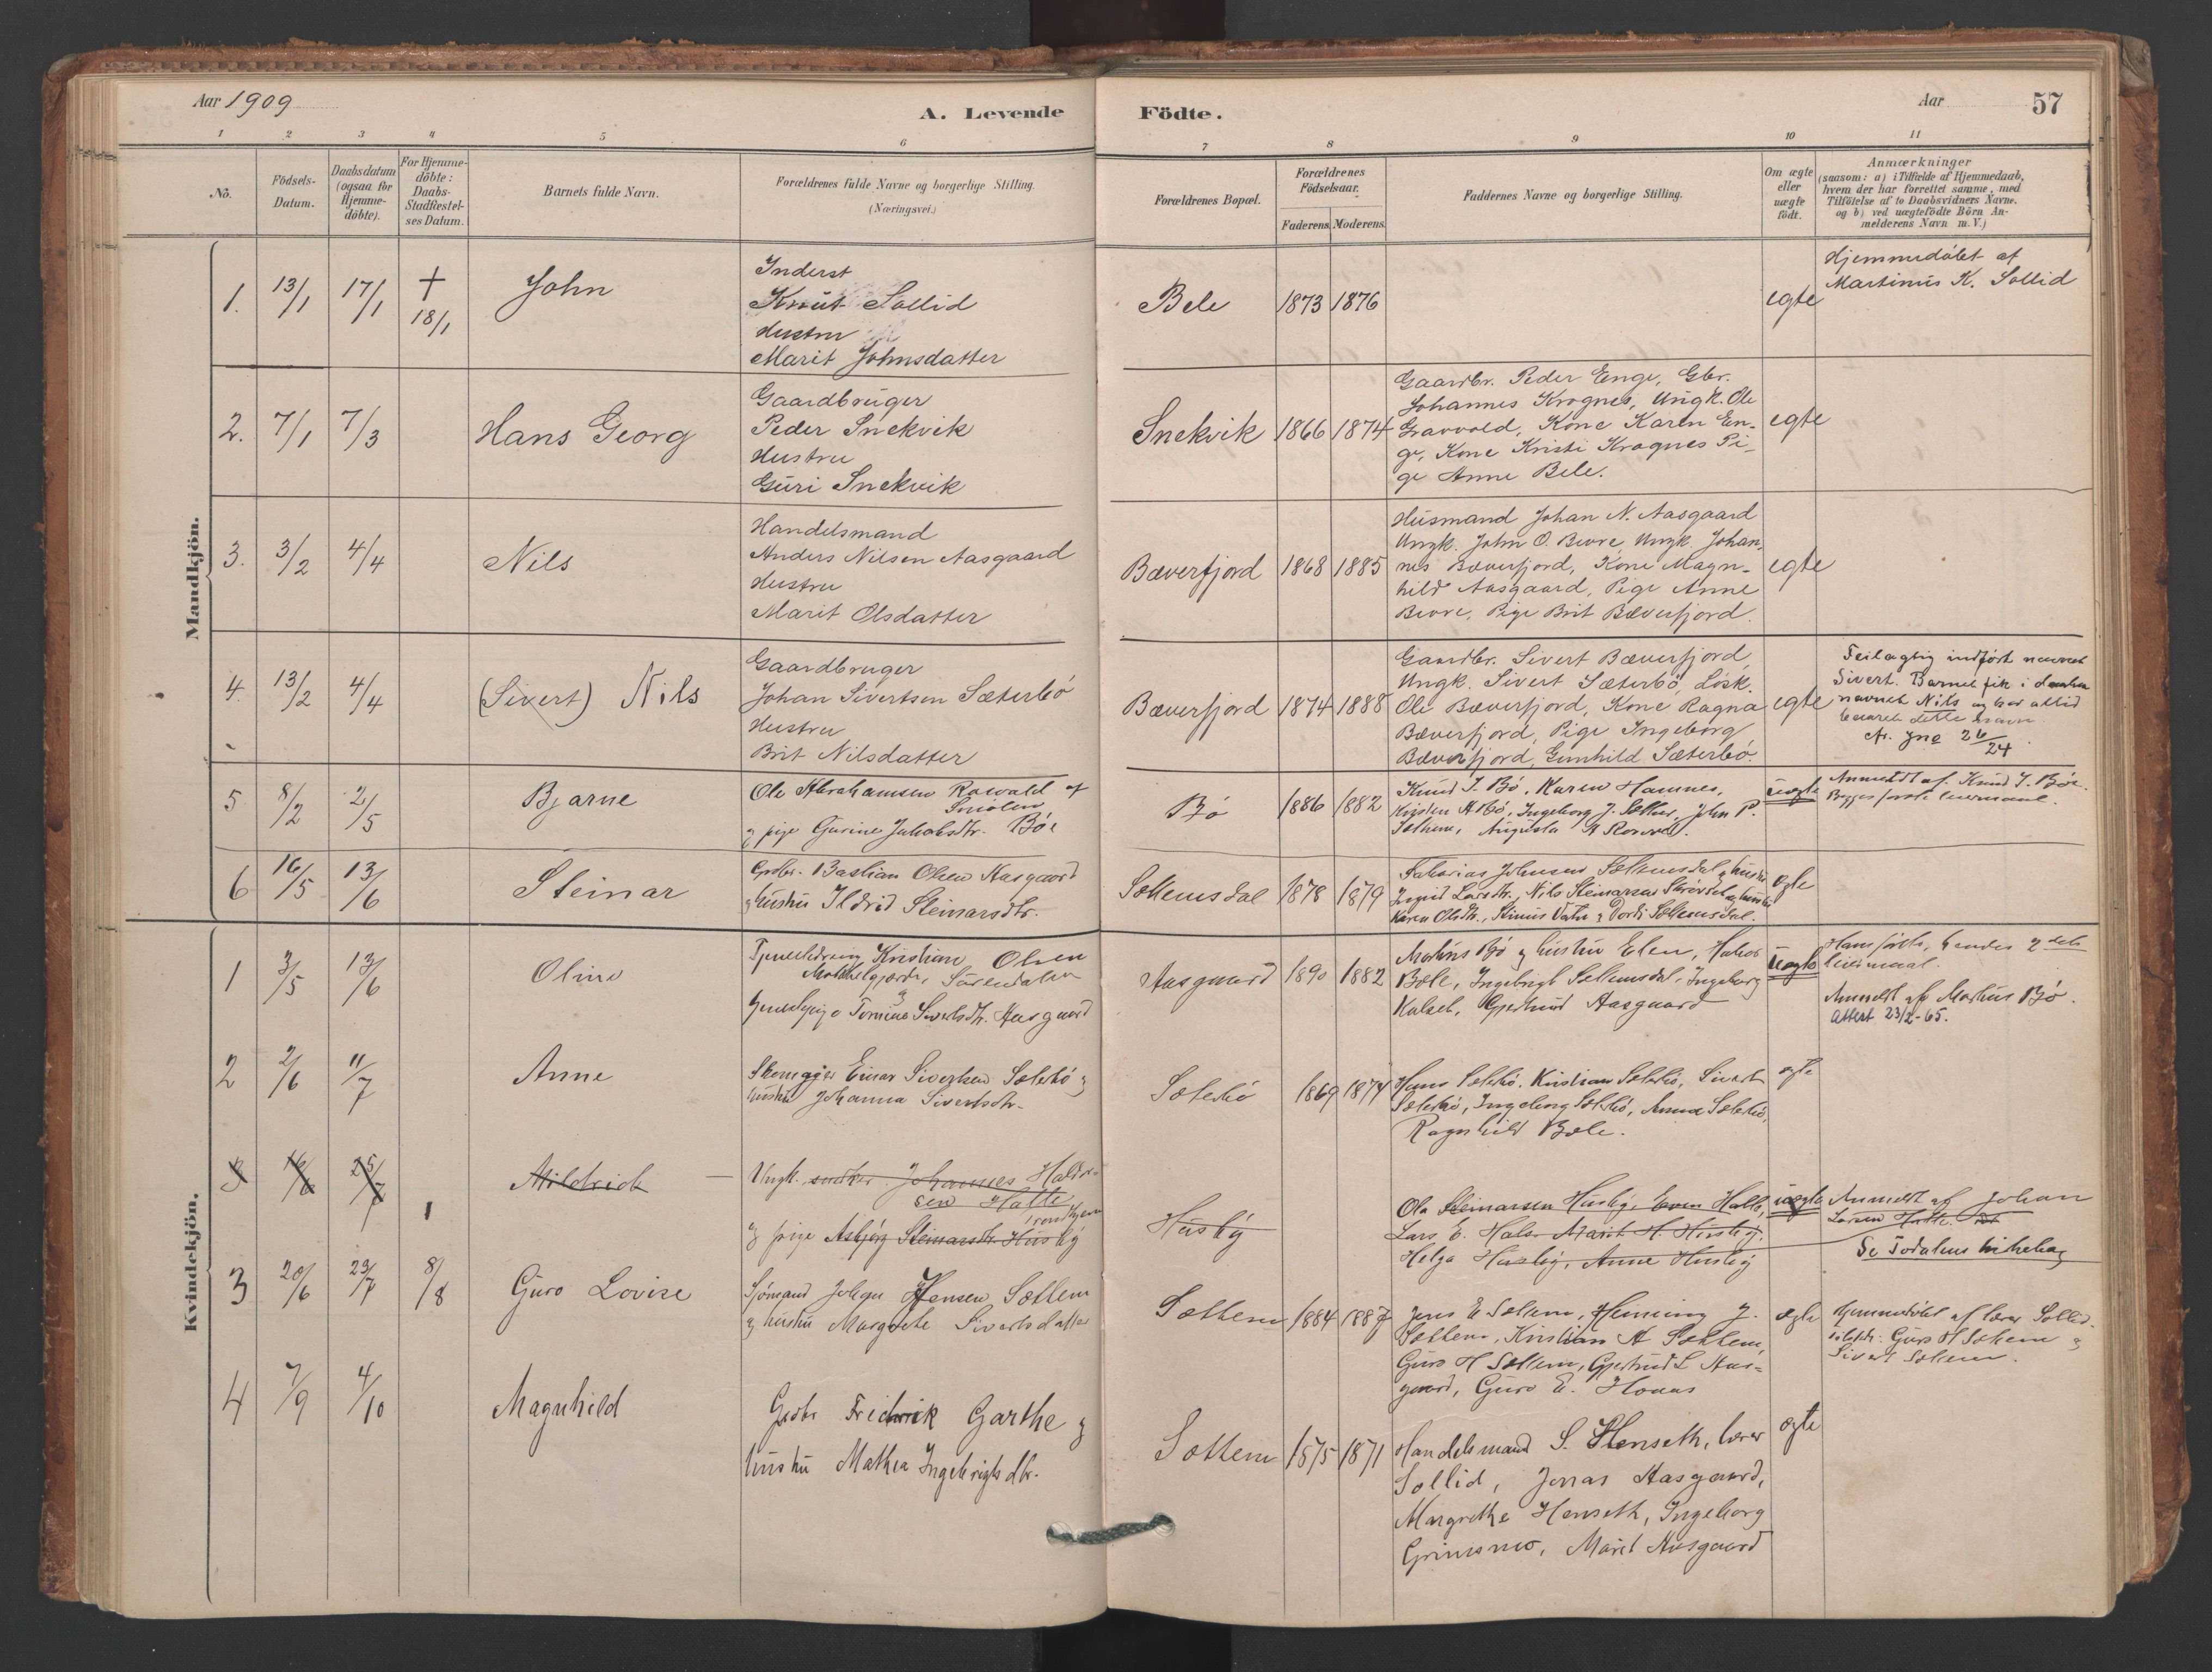 Aar 1909
A. Levende Födte.
Aar
57
1 2 3 4 5 6 7 8 9 10 11
No.
Födsels-
Datum.
Daabsdatum
(ogsaa for
Hjemme-
döbte).
For Hjemme-
döbte:
Daabs-
Stadfæstel-
ses Datum.
Barnets fulde Navn.
Forældrenes fulde Navne og borgerlige Stilling.
(Næringsvei.)
Forældrenes Bopæl.
Forældrenes
Födselsaar.
Faderens. Moderens.
Faddernes Navne og borgerlige Stilling.
Om ægte
eller
uægte
födt.
Anmærkninger
(saasom: a) i Tilfælde af Hjemmedaab,
hvem der har forrettet samme, med
Tilföielse af to Daabsvidners Navne.
og b) ved uægtefödte Börn An-
melderens Navn m.V.)
Mandkjön.
1. 13/1 17/1 † 18/1 John
Inderst
Knut Sollid
Hustru
Marit Johnsdatter
Bele 1873 1876
egte
Hjemmedöbt af
Martinus K. Sollid
2. 7/1 7/3 Hans Georg
Gaardbruger
Peder Snekvik
Hustru
Guri Snekvik
Snekvik 1866 1874
Gaardbr. Peder Enge, Gbr.
Johannes Krognes, Ungk. Ole
Gravvold, Kone Karen En-
ge, Kone Kristi Krognes Pi-
ge Anne Bele.
egte
3. 3/2 4/4 Nils
Handelsmand
Anders Nilsen Aasgaard
Hustru
Marit Olsdatter
Bæverfjord 1868 1885
Husmand Johan N. Aasgaard
Ungk. John O. Bevre, Ungk. Johan,
nes Bæverfjord, Kone Magn-
hild Aasgaard, Pige Anne
Bevre, Pige Brit Bæverfjord.
egte
4. 13/2 4/4 (Sivert) Nils
Gaardbruger
Johan Sivertsen Sæterbö
Hustru
Brit Nilsdatter
Bæverfjord 1874 1888
Gaardbr. Sivert Bæverfjord,
Ungk. Sivert Sæterbö, Lösk.
Ole Bæverfjord, Kone Ragna
Bæverfjord, Pige Ingeborg
Bæverfjord, Gunhild Sæterbö.
egte
Feilagtig indført navnet
Sivert. Barnet fik i daaben
navnet Nils og har altid
baaret dette navn.
26/24
5 8/2 2/5 Bjarne
Ole Abrahamsen Rowald af
Smölen
og pige Gurine Jakobsdtr. Böe
Bö 1886 1882
Knud I. Bö, Karen Hamnes,
Kirsten A Bö, Ingeborg J. Settem, John P.
Settem, Augusta A
uegte
Anmeldt af Knud I. Böe.
Begges første leiermaal.
6 16/5 13/6 Steinar
Grdbr. Bastian Olsen Aasgaard
og hustru Ildrid Steinarsdtr.
Settemsdal 1878 1879
Sakarias Johnsen Settemsdal og hustru
Ingrid Larsdtr, Nils Steinarsen og hustru
Karen Olsdtr., og Dordi Settemsdal.
egte
Kvindekjön.
1 3/5 13/6 Oline
Kristian Olsen
og
Sivertsdtr. Aasgaard
Aasgaard 1890 1882
Martinus Bö og hustru Elen,
Bele, Ingebrigt Settemsdal, Ingeborg
Kalset, Gjertrud Aasgaard
uegte
Hans förste, hendes 2det
leiermaal.
Anmeldt af Martinus Bö.
Attest 23/2-65.
2 2/6 11/7 Anne
Skomager Einar Sivertsen Seterbö og
hustru Johanna Sivertsdtr.
Seterbö 1869 1874
Hans Seterbö, Kristian Seterbö, Sivert
Seterbö, Ingeborg Seterbö, Anna Seterbö,
Ragnhild Bele.
egte
3 16/6 25/7 Mildrid
Ungk. snedker Johannes Haldor-
sen Halle
og pige Asbjørg Steinarsdtr. Husby
Husby
Ola Steinarsen Husby, Even Halle,
Lars E. Halse Marit H. Husby,
Helga Husby, Anne Husby
uegte
Anmeldt af Johan
Larsen Halle.
Se Todalens kirkebog
3 20/6 23/7 8/8 Guro Lovise
Sjömand Johan Jensen Settem
og hustru Margrete Sivertsdatter
Settem 1884 1887
Jens E Settem, Henning J.
Settem, Kristian A Settem,
Guro H Settem, Gjertrud L Aas-
gaard, Guro E. Honas
egte
Hjemmedöbt af lærer Sollid.
Guro H Settem og
Sivert Settem.
4 7/9 4/10 Magnhild
Grdbr Fridrik Garthe og
hustru Mathea Ingebrigtsdtr.
Settem 1875 1871
Handelsmand S. Henseth, lærer
Sollid, Jonas Aasgaard,
Margrethe Henseth, Ingeborg
Grimsmo, Marit Aasgaard
egte